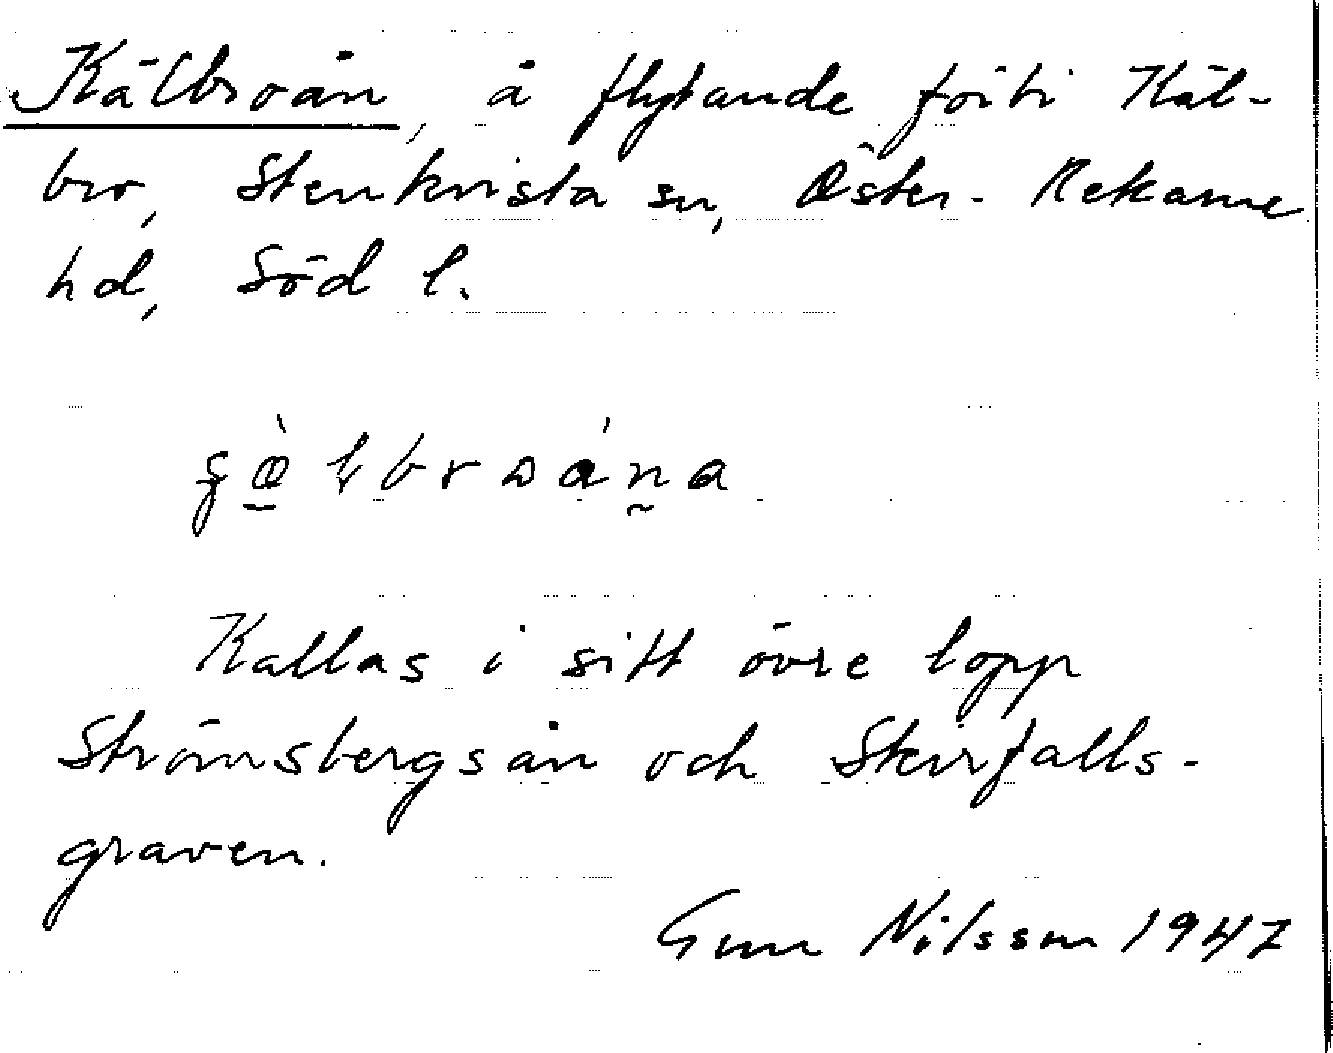 Kälbroån, å flytande förbi Käl-
bro, Stenkvista sn, Öster-Rekarne
hd, Söd l.
Kallas i sitt övre lopp
Strömsbergsån och Skirfalls-
graven.
Gun Nilsson 1947